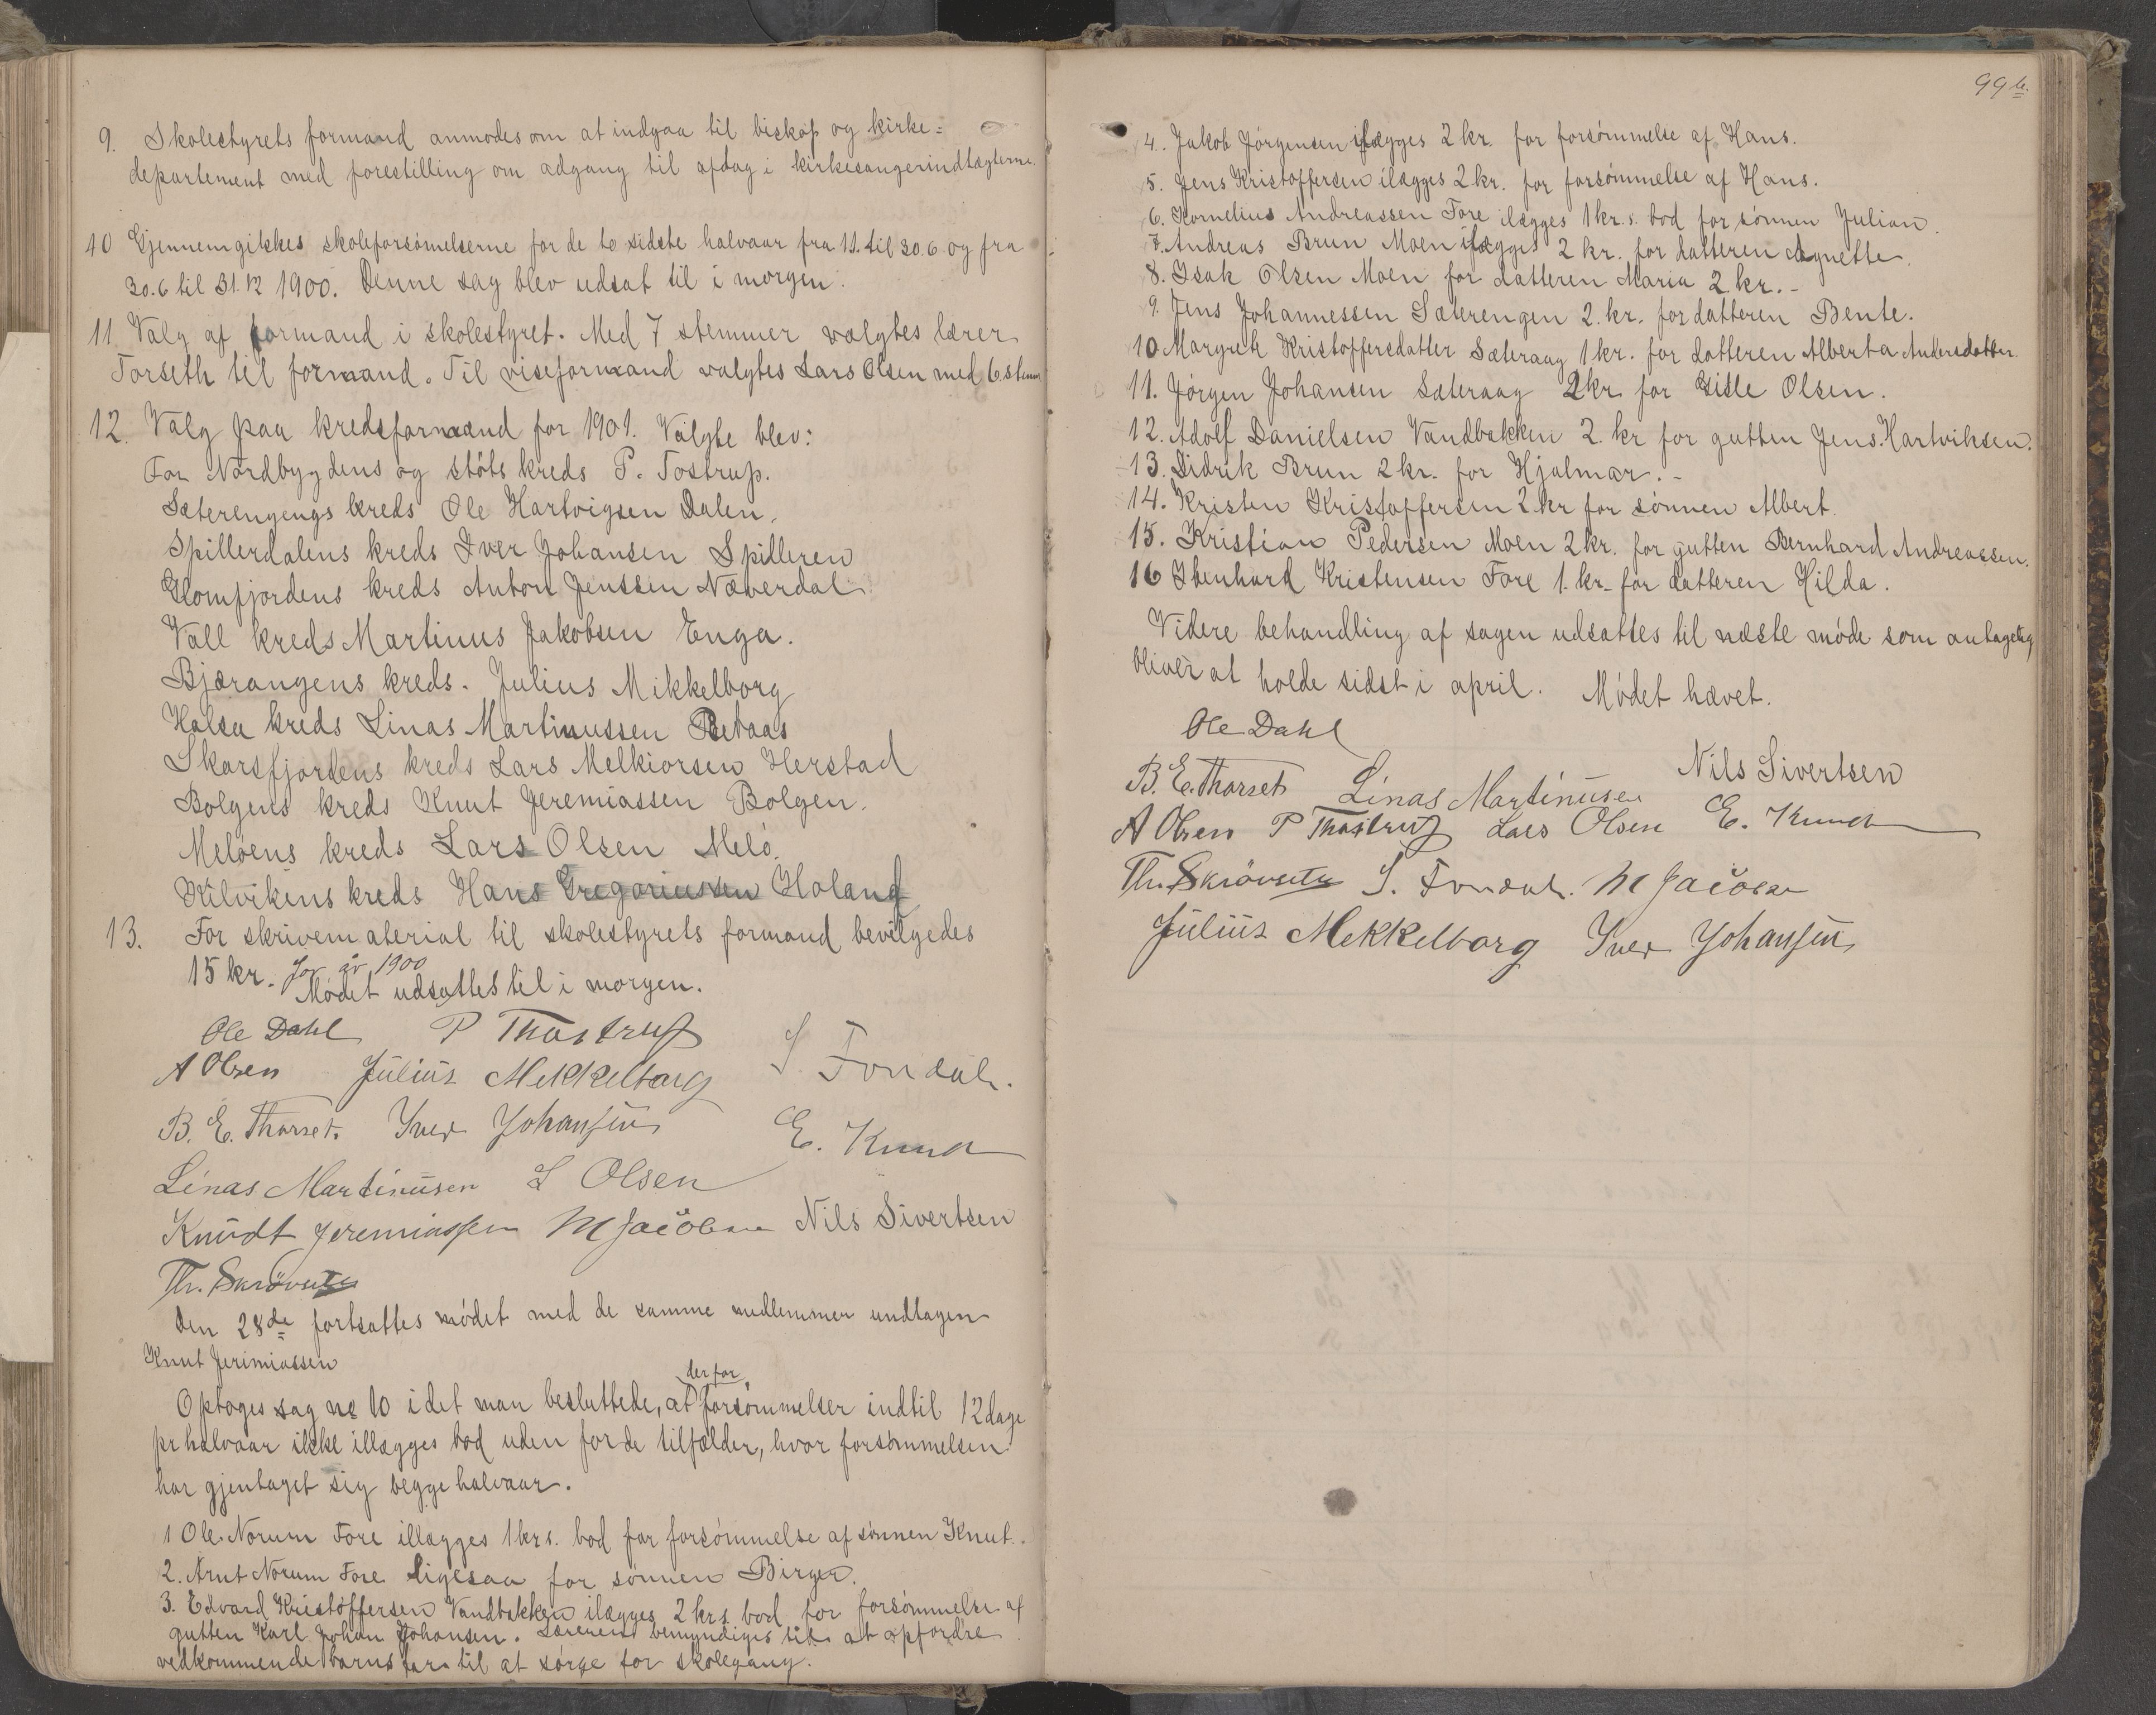 9. Skolestyrets formand anmodes om at indgaa til biskop og kirke=
departement med forestilling om adgang til afdag i kirkesangerindtægterne.
10 Gjennemgikkes skoleforsömelserne for de to sidste halvaar fra 1.1. til 30.6 og fra
30.6 til 31.12 1900. Denne sag blev udsat til i morgen.
11 Valg af formand i skolestyret. Med 7 stemmer valgtes lærer
Torseth til formand. Til viseformand valgtes Lars Olsen med 6 stem
12. Valg paa kredsformænd for 1901. Valgte blev:
For Nordbygdens og stöts kreds P. Tostrup.
Sæterengengs kreds Ole Hartvigsen Dalen.
Spillerdalens kreds Iver Johansen Spilleren
Glomfjordens kreds Anton Jenssen Næverdal
Vall kreds Martinus Jakobsen Enga.
Bjærangens kreds. Julius Mikkelborg
Halsa kreds Linas Martinussen
Skarsfjordens kreds Lars Melkiorsen Herstad
Bolgens kreds Knut Jeremiassen Bolgen.
Melöens kreds Lars Olsen Melö.
Kilvikens kreds Hans Gregoriussen Holand
13. For skrivematerial til skolestyrets formand bevilgedes
15 kr. for år 1900
Mödet udsattes til i morgen.
Ole Dahl P Thostrup
S Fondal.
A Olsen Julius Mekkelborg
B. E. Thorset. Iver Johansen E. Knud
Linas Martinusen L Olsen
Knudt Jeremiassen M Jacobsen Nils Sivertsen
Th. Skrövseth
Den 28de fortsattes mödet med de samme medlemmer undtagen
Knut Jerimiassen
der for
Optoges sag no 10 idet man besluttede, at forsömmelser indtil 12 dage
pr halvaar ikke illægges bod uden for de tilfælder, hvor forsömmelsen
har gjentaget sig begge halvaar.
1 Ole Norum Fore illægges 1 krs. bod for forsömmelse af sönnen Knut.
2. Arnt Norum Fore ligesaa for sönnen Birger.
3. Edvard Kristoffersen Vandbakken ilægges 2 krs. bod for forsömmelse af
gutten Karl Johan Johansen. Læreren bemyndiges til at opfordre
vedkommende barns far til at sörge for skolegang.
99 b.
4. Jakob Jörgensen ilægges 2 kr. for forsömmelse af Hans.
5. Jens Kristoffersen ilægges 2 kr. for forsömmelse af Hans.
6. Kornelius Andreassen Fore ilægges 1 kr.s. bod for sönnen Julian.
7. Andreas Brun Moen ilægges 2 kr. for datteren Agnette.
8. Isak Olsen Moen for datteren Maria 2 kr. -
9. Jens Johannessen Sæterengen 2. kr. for datteren Bente.
10 Margrete Kristoffersdatter Sæteraag 1 kr. for datteren Alberta Andersdatter
11. Jörgen Johansen Sæteraag 2 kr. for Gisle Olsen.
12. Adolf Danielsen Vandbakken 2. kr for gutten Jens. Hartviksen.
13. Didrik Brun 2 kr. for Hjalmar. -
14. Kristen Kristoffersen 2 kr for sönnen Albert.
15. Kristian Pedersen Moen 2 kr. for gutten Bernhard Andreassen.
16 Ibenhard Kristensen Fore 1. kr. for datteren Hilda.
Videre behandling af sagen udsattes til næste möde som antagelig
bliver at holde sidst i april. Mödet hævet.
Ole Dahl
B. E. Thorset Linas Martinusen Nils Sivertsen
A Olsen P Thostrup Lars Olsen E. Knud
Th. Skrövseth S. Fondal. M Jacobsen
Julius Mekkelborg Iver Johansen